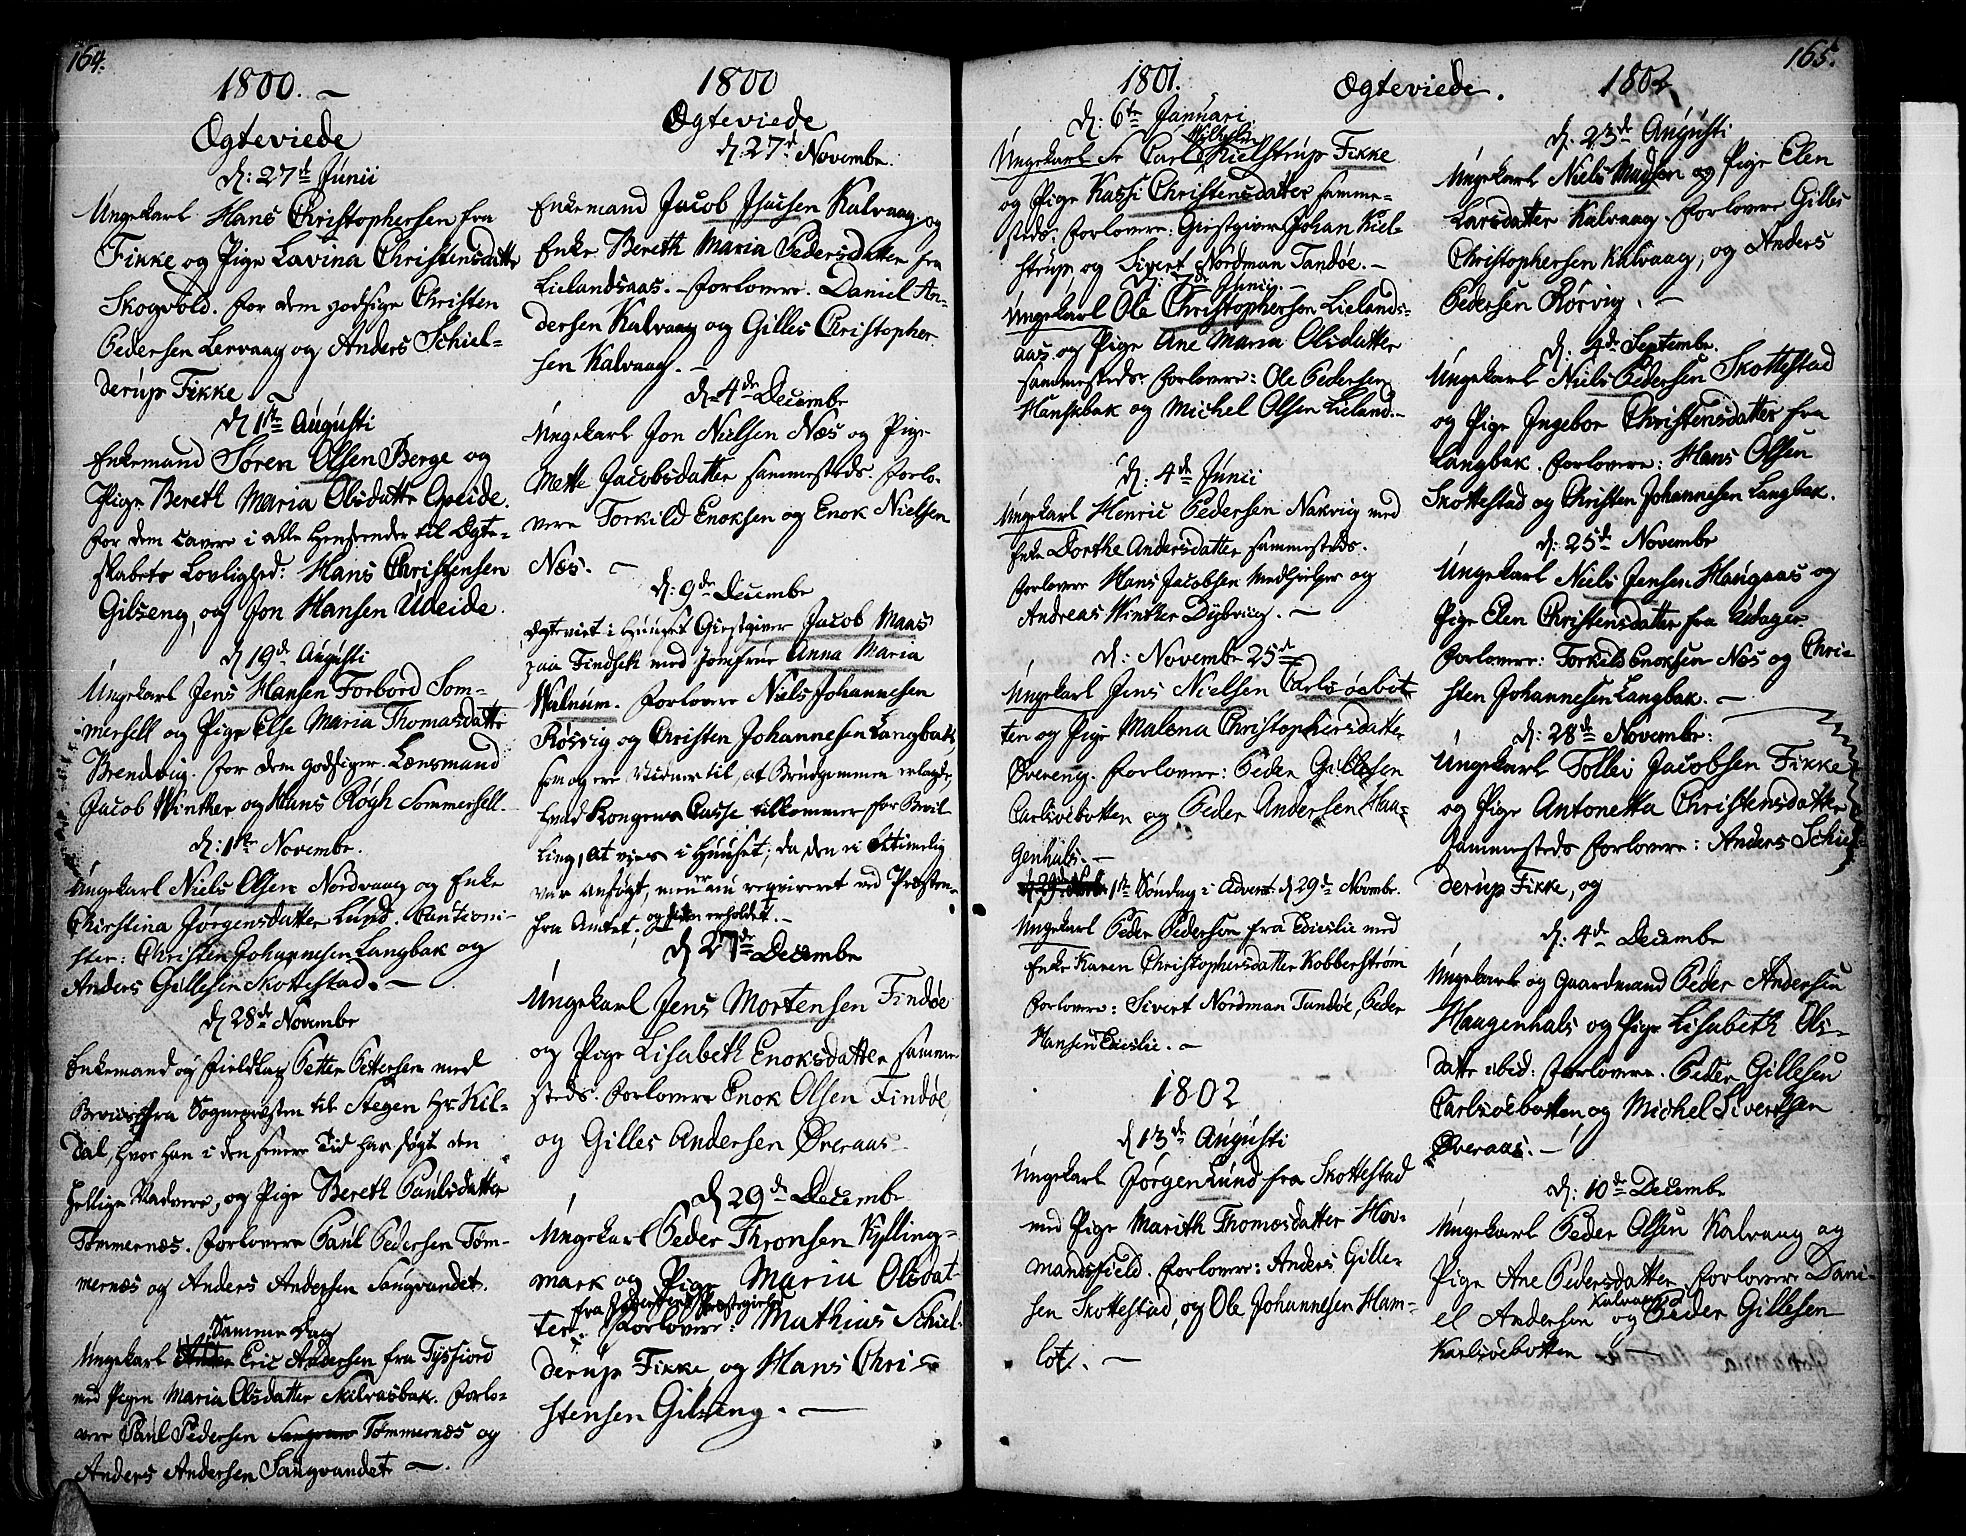 164.
1800. –
Ægteviede
d: 27d Junii
Ungekarl Hans Christophersen fra
Fikke og Pige Lavina Christensdatter
Skogvold. for dem godsige Christen
Pedersen Lervaag og Anders Schiel-
derup Fikke.
d 1ste Augusti
Enkemand Søren Olsen Berge og
Pige Bereth Maria Olsdatter Opeide.
for dem cavere i alle Henseender til Ægte-
skabets Lovlighed: Hans Christensen
Gilseng, og Jon Hansen Udeide.
d 19de Augusti
Ungekarl Jens Hansen Forbord Som-
mersell og Pige Else Maria Thomasdatter
Brendvig. for dem godsiger Lænsmand
Jacob Winther og Hans Rógh Sommersell.
d: 1ste Novembr.
Ungekarl Niels Olsen Nordvaag og Enke
Christina Jørgensdatter Lund. Cautioni-
ster: Christen Johannesen Langbak og
Anders Gillesen Skottestad. –
d 28de Novembr
Enkemand og Fieldlap Petter Pettersen med
Beviis fra Sognepræsten til Stegen Hr Kil-
dal, hvor han i den senere Tid har søgt den
hellige Nadvere, og Pige Bereth Paulsdatter
Tømmernæs. forlovere Paul Pedersen Tøm-
mernæs og Anders Andersen Sangvandet.
Samme Dag
Ungekarl Eric Andersen fra Tysfiord
med Pigen Maria Olsdatter Skilvasbak. forlo-
vere Paul Pedersen Tømmernæs og
Anders Andersen Sangvandet –
1800
Ægteviede
d: 27d Novembr.
Enkemand Jacob Isacsen Kalvaag og
Enke Bereth Maria Pedersdatter fra
Lielandsaas. – forlovere. Daniel An-
dersen Kalvaag og Gilles Christopher-
sen Kalvaag. –
d. 4de Decembr
Ungekarl Jon Nielsen Næs og Pige
Mette Jacobsdatter sammesteds. forlo-
vere Torkild Enoksen og Enok Nielsen
Næs. –
d: 9de Decembr
Ægteviet i Huuset Giestgiver Jacob Maas
zaia Findseth med Jomfrue Anna Maria
Walnum. forlovere Niels Johannesen
Rósvig og Christen Johannesen Langbak,
som og ere Vidner til, at Brudgommen erlagde,
hvad Kongens Casse tilkommer for Bevil
ling, at vies i Huuset; da den ei betimelig
var ansøgt, men er nu reqvireret ved Præsten
fra Amtet, og siden erholdet. –
d 27de Decembr
Ungekarl Jens Mortensen Findøe
og Pige Lisabeth Enoksdatter samme
steds. forlovere Enok Olsen Findøe
og Gilles Andersen Øveraas
d 29de Decembr
Ungekarl Peder Thronsen Kylling-
mark og Pige Maria Olsdat-
ter. forlovere: Mathias Schiel-
derup Fikke, og Hans Chri-
stensen Gilseng. –
165.
1801.
Ægteviede.
d: 6te Januari.
Wilhelm
Ungekarl Sr Carl Kielstrup Fikke
og Pige Kassi Christensdatter samme-
steds. forlovere: Giestgiver Johan Kiel-
strup og Sivert Nordman Tandøe. –
Ungekarl Ole Christophersen Lielands-
aas og Pige Ane Maria Olsdatter
sammesteds. forlovere: Ole Pedersen
Hanskbak og Michel Olsen Lieland. –
d: 4de Junii
Ungekarl Henric Pedersen Nakvig med
Enke Dorthe Andersdatter sammesteds.
forlovere Hans Jacobsen Medhielper og
Andreas Winther Dybvig. –
d: Novembr 25de
Ungekarl Jens Nielsen Carlsóebot-
ten og Pige Malena Christophersdatter
Øvereng. forlovere: Peder Gillesen
Carlsóebotten og Peder Andersen Haa-
genhals. –
1ste Søndag i Advent d 29de Novembr.
Ungekarl Peder Pedersen fra Evislie med
Enke Karen Christophersdatter Kobberstrøm
forlovere: Sivert Nordman Tandøe, Peder
Hansen Evislie. –
1802
d 13de Augusti
Ungekarl Jørgen Lund fra Skottestad
med Pige Marith Thomasdatter Hov-
mandsfield. forlovere: Anders Gille-
sen Skottestad, og Ole Johannesen Ham-
lot. –
1802
d: 23de Augusti
Ungekarl Niels Madsen og Pige Elen
Larsdatter Kalvaag. forlovere Gilles
Christophersen Kalvaag, og Anders
Pedersen Rørvig. –
Septembr.
Ungekarl Niels Pedersen Skottestad
og Pige Ingebor Christensdatter fra
Langbak. forlovere: Hans Olsen
Skottestad og Christen Johannesen Langbak.
d: 25de Novembr
Ungekarl Niels Jensen Haugaas og
Pige Elen Christensdatter fra Udager
forlovere: Torkild Enoksen Næs og Chri-
sten Johannesen Langbak. –
d: 28de Novembr:
Ungekarl Tollev Jacobsen Fikke
og Pige Antonetta Christensdatter
sammesteds forlovere: Anders Schiel-
derup Fikke, og
d: 4de Decembr
Ungekarl og Gaardmand Peder Andersen
Haagenhals og Pige Lisabeth Ols-
datter ibid: forlovere. Peder Gillesen
Carlsóebotten, og Michel Sivertsen
Øveraas. –
d: 10de Decembr
Ungekarl Peder Olsen Kalvaag og
Pige Ane Pedersdatter forlovere Dani-
Kalvaag
el Andersen og Peder Gillesen
Karlsóebotten –